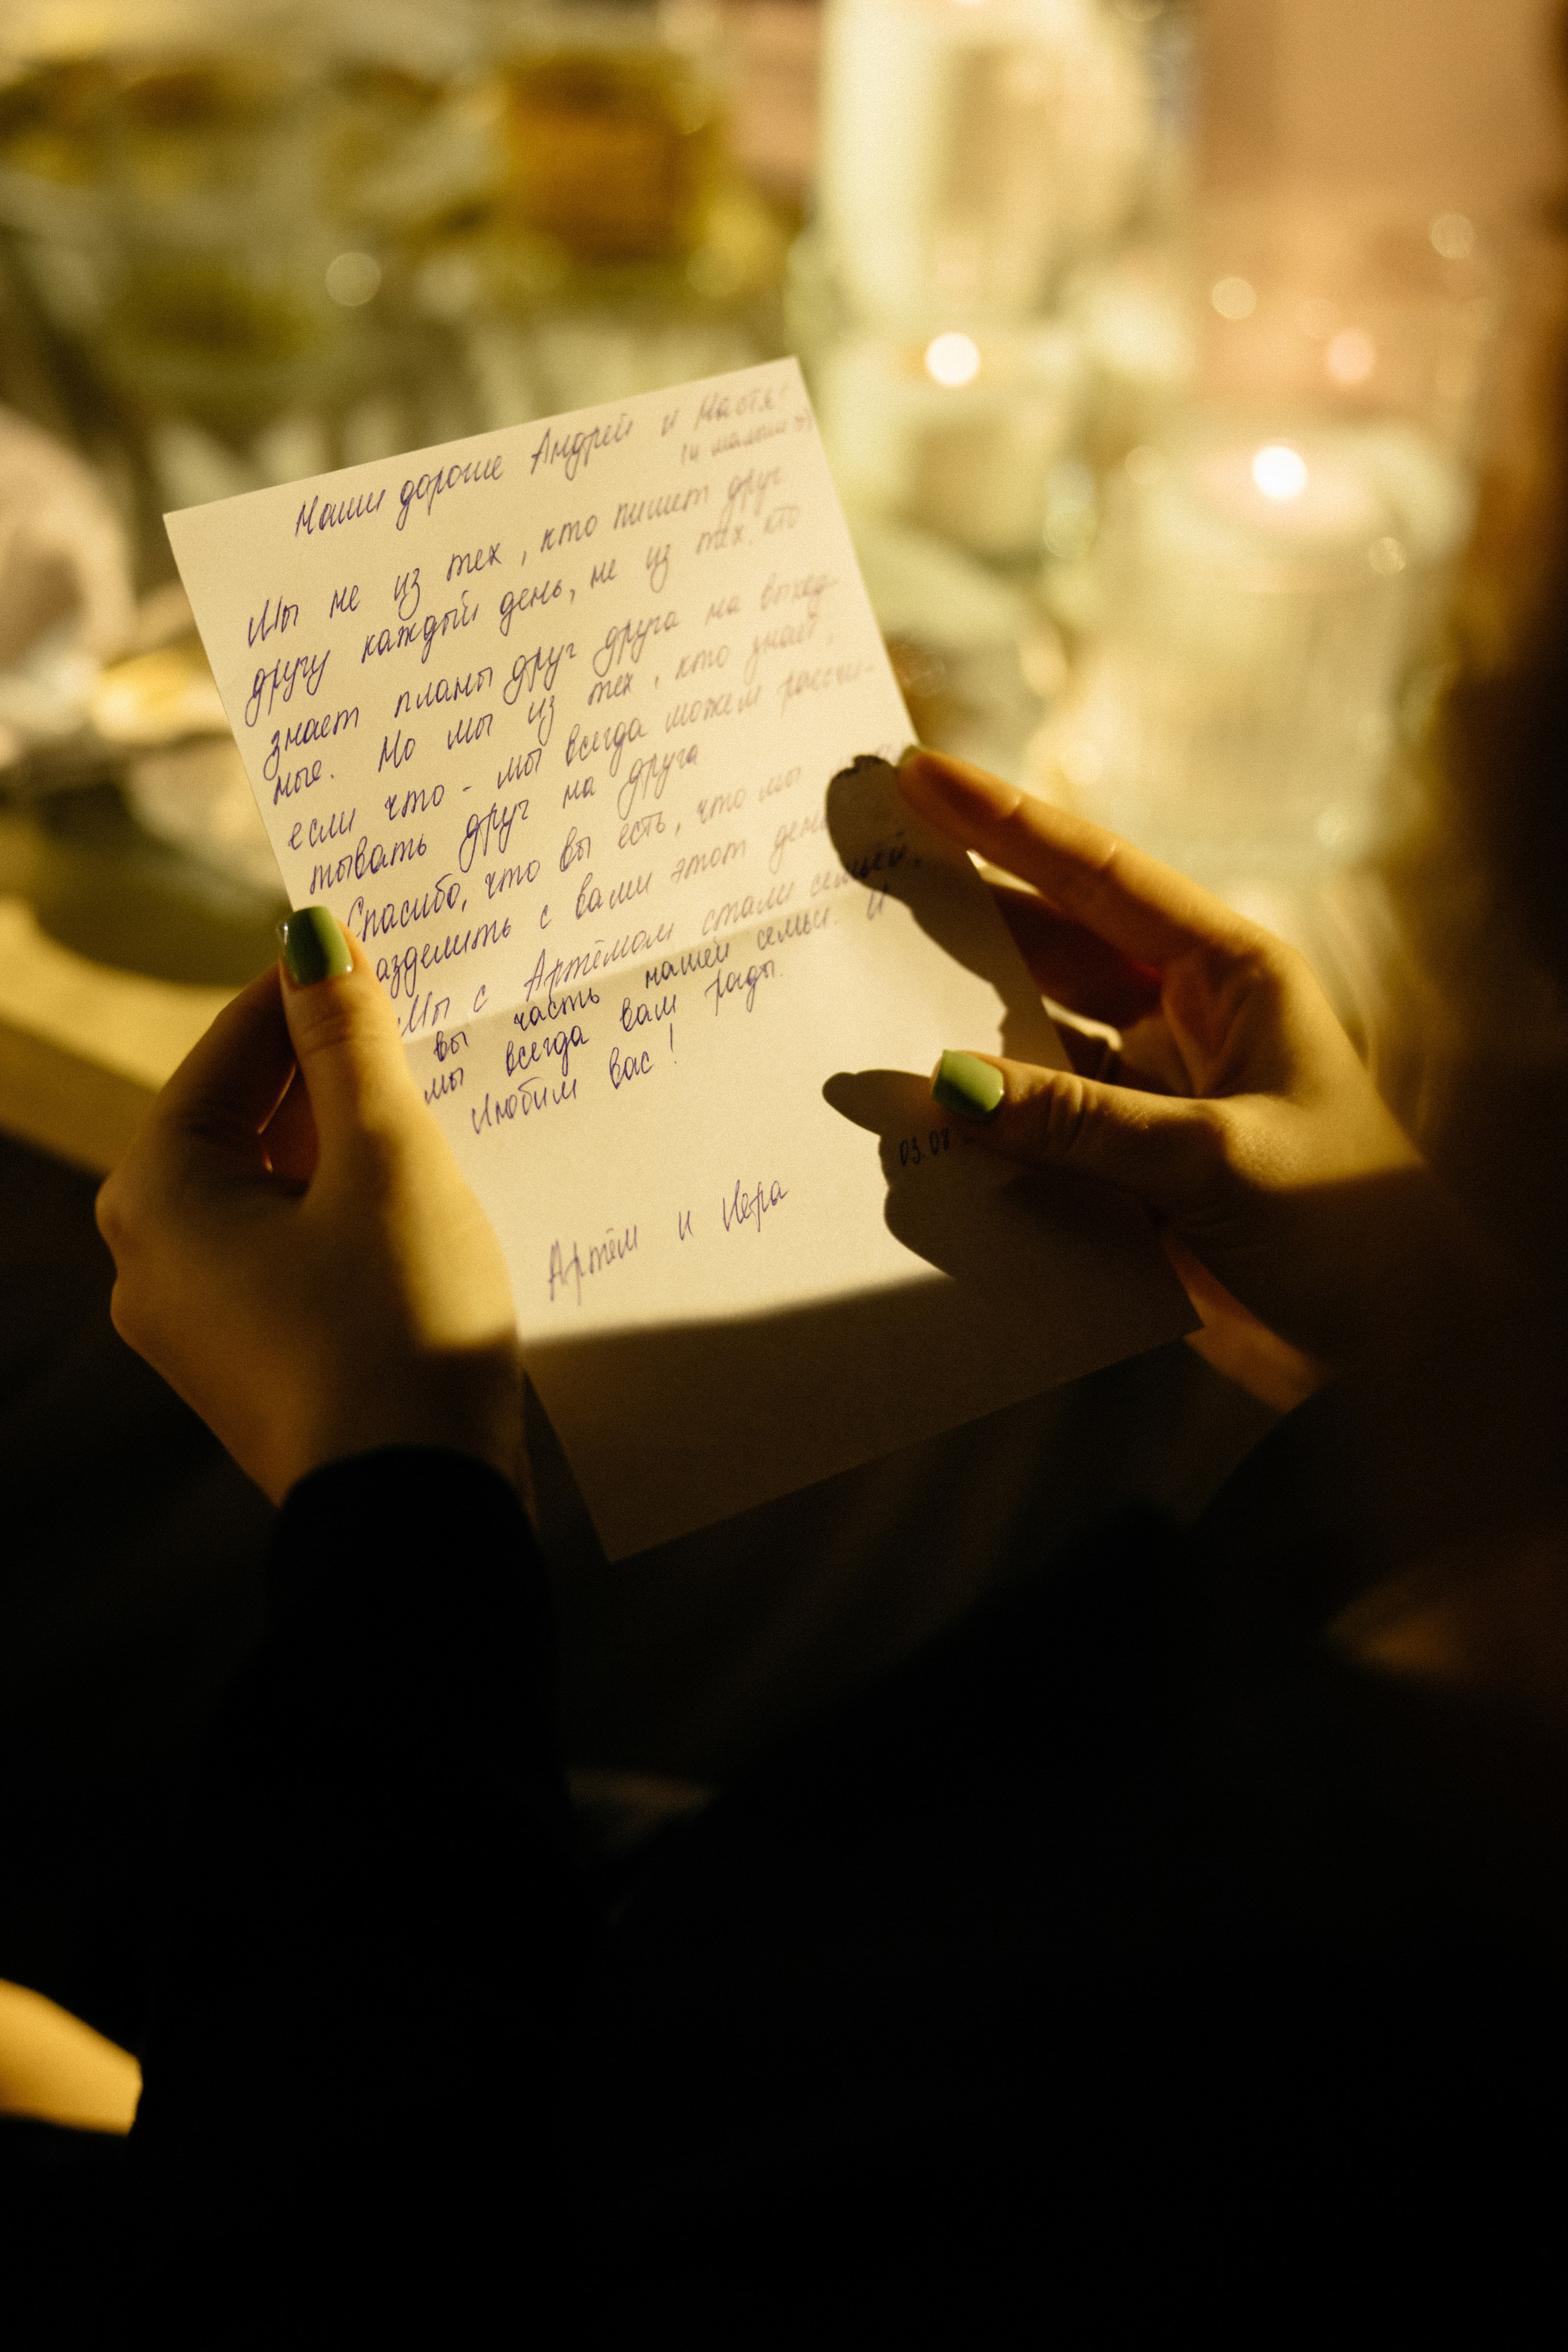 Наши дорогие Андрей и Настя
(и малыш
Мы не из тех, кто пишет друг
другу каждый день, не из тех, кто
знает планы друг друга на выход-
ные. Но мы из тех, кто знает,
если что - мы всегда можем рассчи-
тывать друг на друга
Спасибо, что вы есть, что мы
азделить с вами этот день
Мы с Артёмом стали семьёй,
вы часть нашей семьи. И
мы всегда вам рады.
Любим вас!
03.08
Артём и Лера